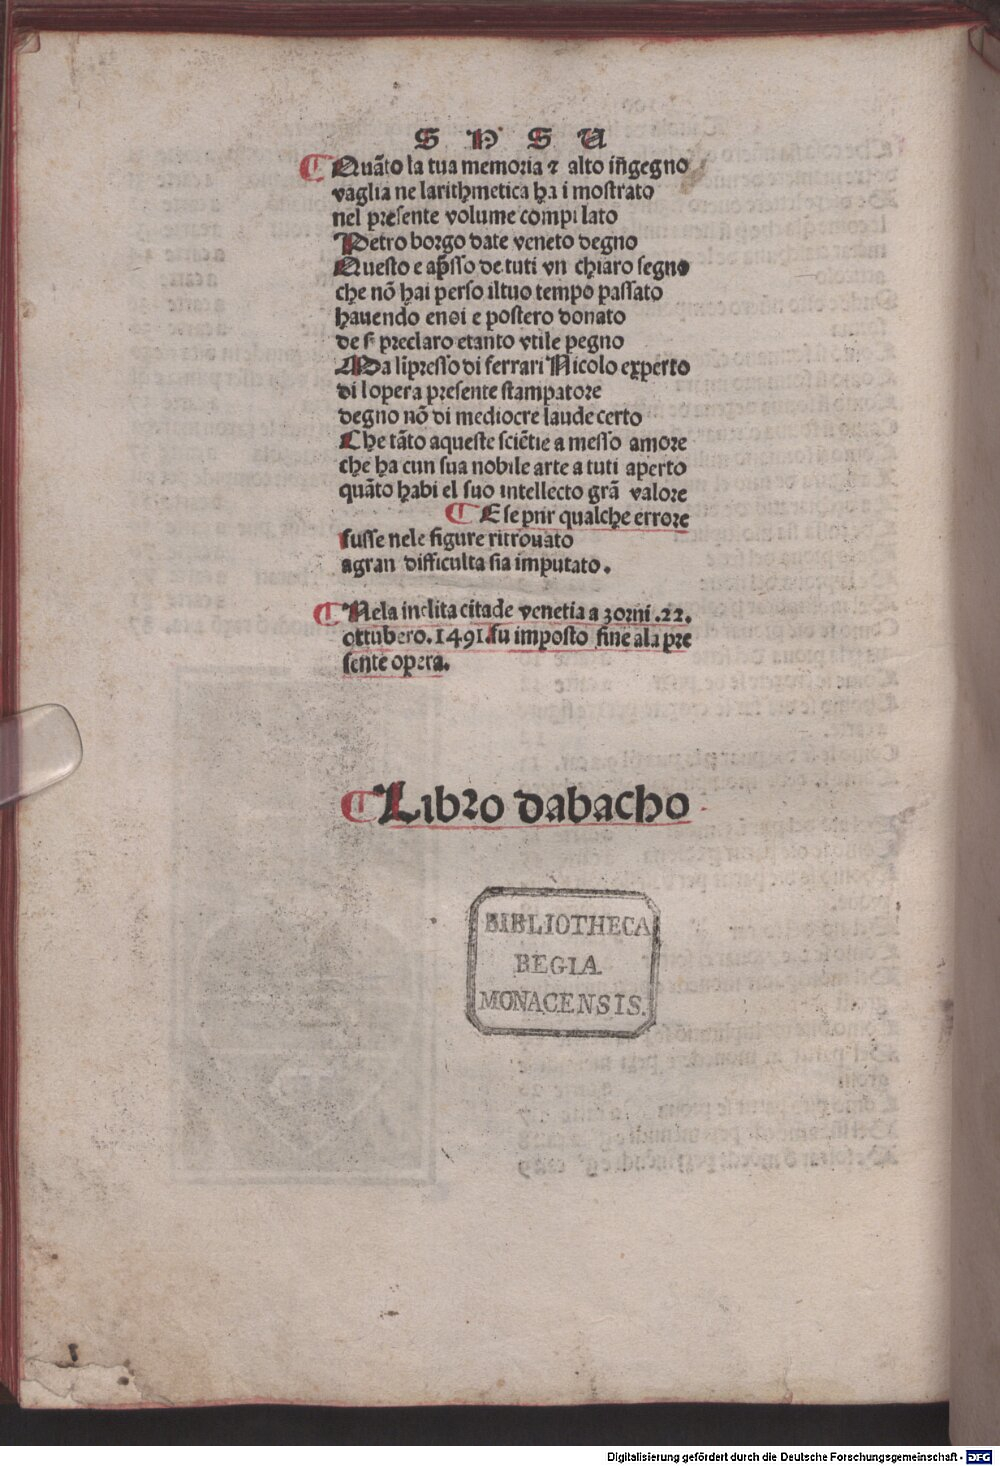 S P S U
Quãto la tua memoria ⁊ alto iñgegno
vaglia ne larithmetica ha i mostrato
nel presente volume compi lato
Petro borgo date veneto degno
Questo e ap̃sso de tuti vn chiaro segno
che nõ hai perso iltuo tempo passato
havendo enoi e postero donato
de si preclaro etanto vtile pegno
Ma lipresso di ferrari Nicolo experto
di l opera presente stampatore
degno nõ di mediocre laude certo
Che tãto aqueste sciẽtie a messo amore
che ha cun sua nobile arte a tuti aperto
quãto habi el suo intellecto grã valore
E se pur qualche errore
fusse nele figure ritrouato
a gran difficulta sia imputato.
Nela inclita citade venetia a zorni .22.
ottubero. 1491. fu imposto fine ala pre
sente opera.
Libro dabacho
BIBLIOTHECA
REGIA
MONACENSIS.
Digitalisierung gefördert durch die Deutsche Forschungsgemeinschaft - DFG